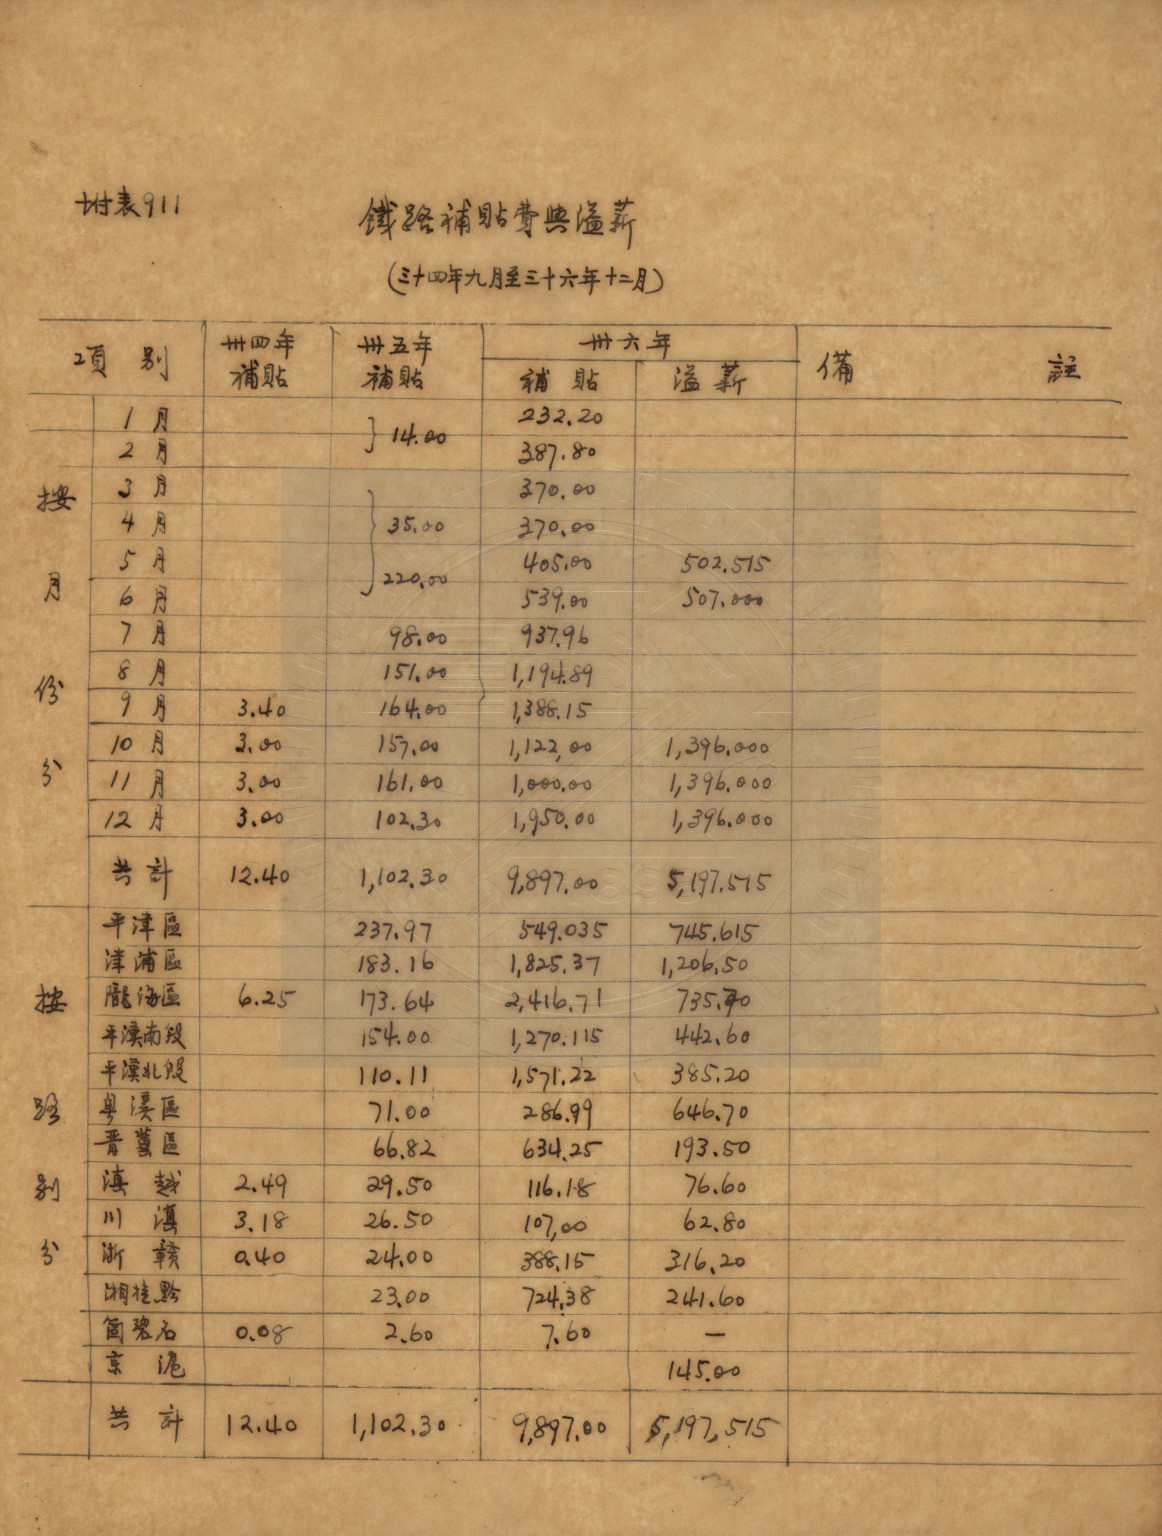 附表911
鐵路補貼費與溢薪
(三十四年九月至三十六年十二月)
項 別 卅四年補貼 卅五年補貼 卅六年 備 註
補 貼 溢 薪
按月份分
1 月 232.20
} 14.00
2 月 387.80
3 月 370.00
4 月 35.00 370.00
5 月 405.00 502.515
} 220.00
6 月 539.00 507.000
7 月 98.00 937.96
8 月 151.00 1,194.89
9 月 3.40 164.00 1,388.15
10 月 3.00 157.00 1,122,00 1,396.000
11 月 3.00 161.00 1,000.00 1,396.000
12 月 3.00 102.30 1,950.00 1,396.000
共 計 12.40 1,102.30 9,897.00 5,197.515
按路別分
平津區 237.97 549.035 745.615
津浦區 183.16 1,825.37 1,206.50
隴海區 6.25 173.64 2,416.71 735.70
平漢南段 154.00 1,270.115 442.60
平漢北段 110.11 1,571.22 385.20
粵漢區 71.00 286.99 646.70
晋冀區 66.82 634.25 193.50
滇 越 2.49 29.50 116.18 76.60
川 滇 3.18 26.50 107,00 62.80
浙 贛 0.40 24.00 388.15 316.20
湘桂黔 23.00 724.38 241.60
箇碧石 0.08 2.60 7.60 —
京 滬 145.00
共 計 12.40 1,102.30 9,897.00 5,197,515